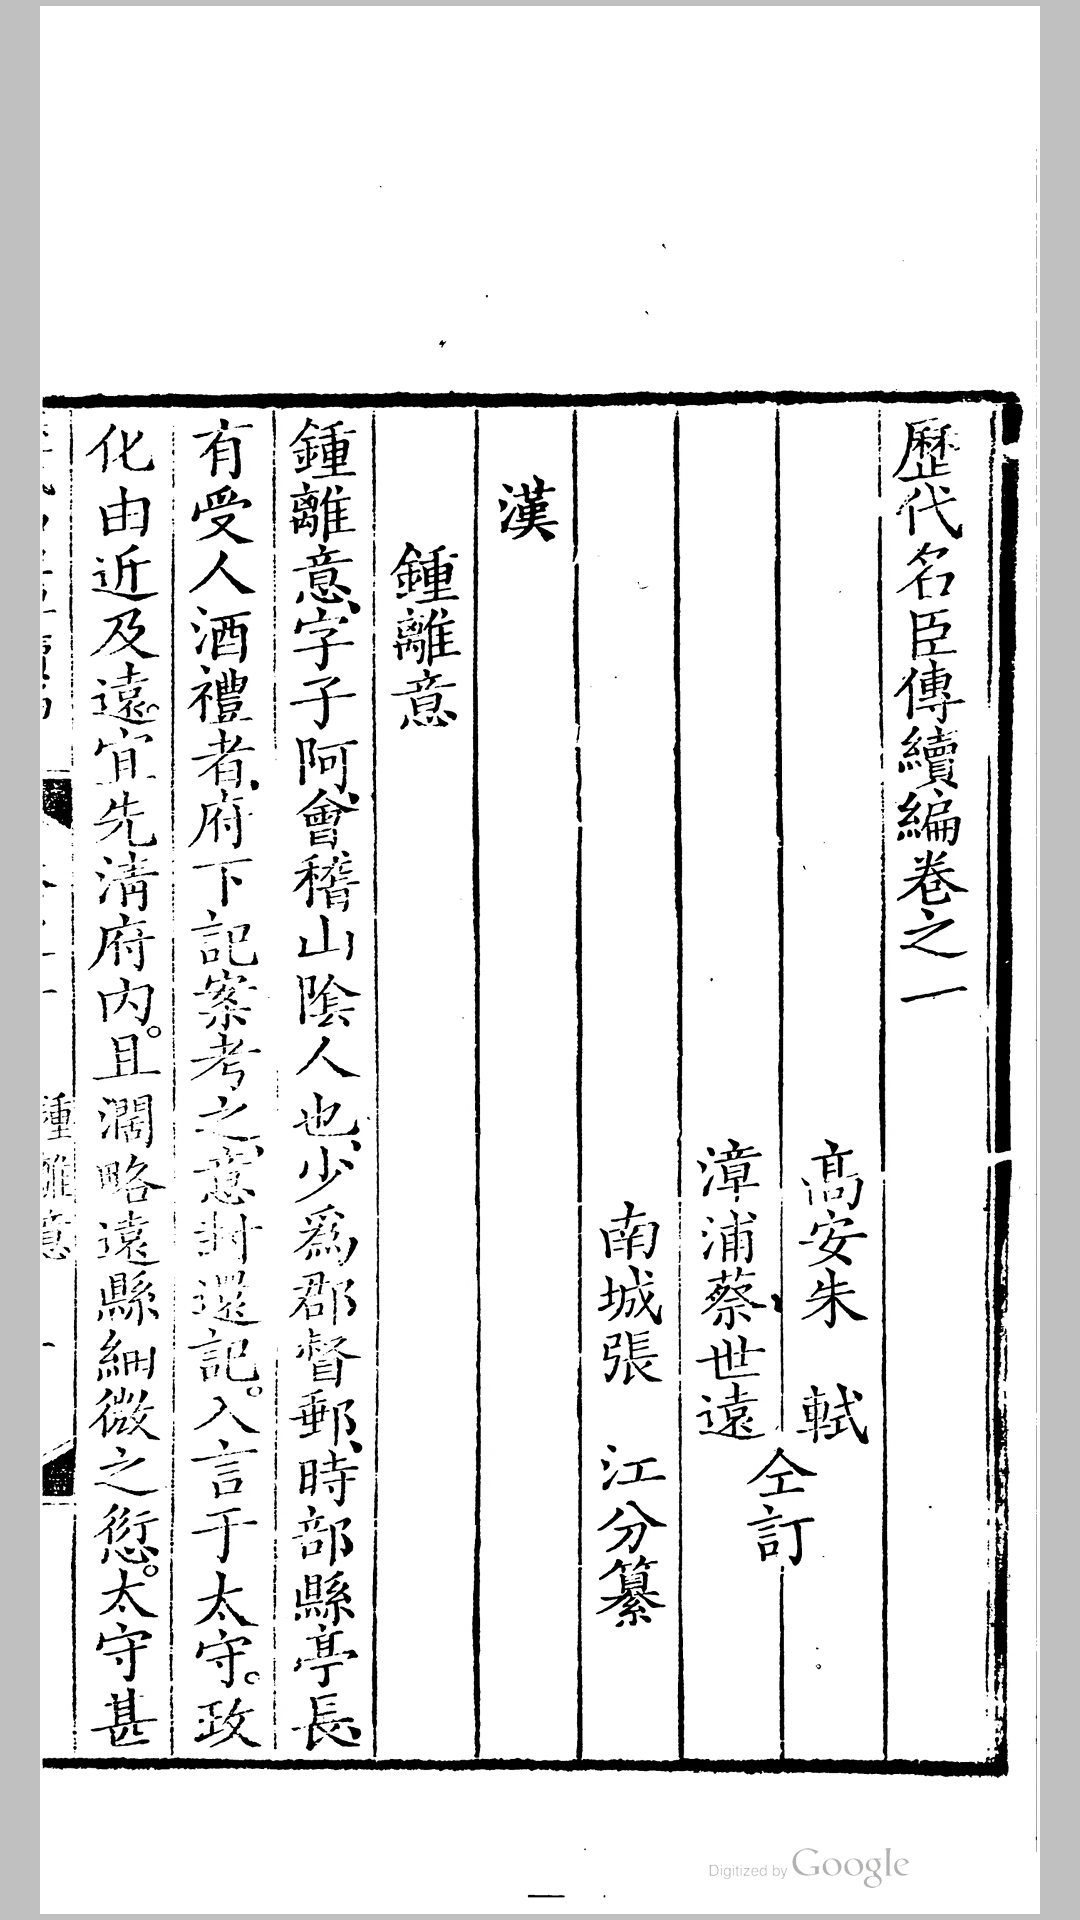 歷代名臣傳續編卷之一
高安朱　軾
漳浦蔡世遠
仝訂
南城張　江分纂
漢
鍾離意
鍾離意、字子阿、會稽山陰人也、少爲郡督郵、時部縣亭長、
有受人酒禮者、府下記案考之、意封還記。入言于太守。政
化由近及遠。宜先淸府內。且濶略遠縣細微之愆。太守甚
鍾離意
一
Digitized by Google